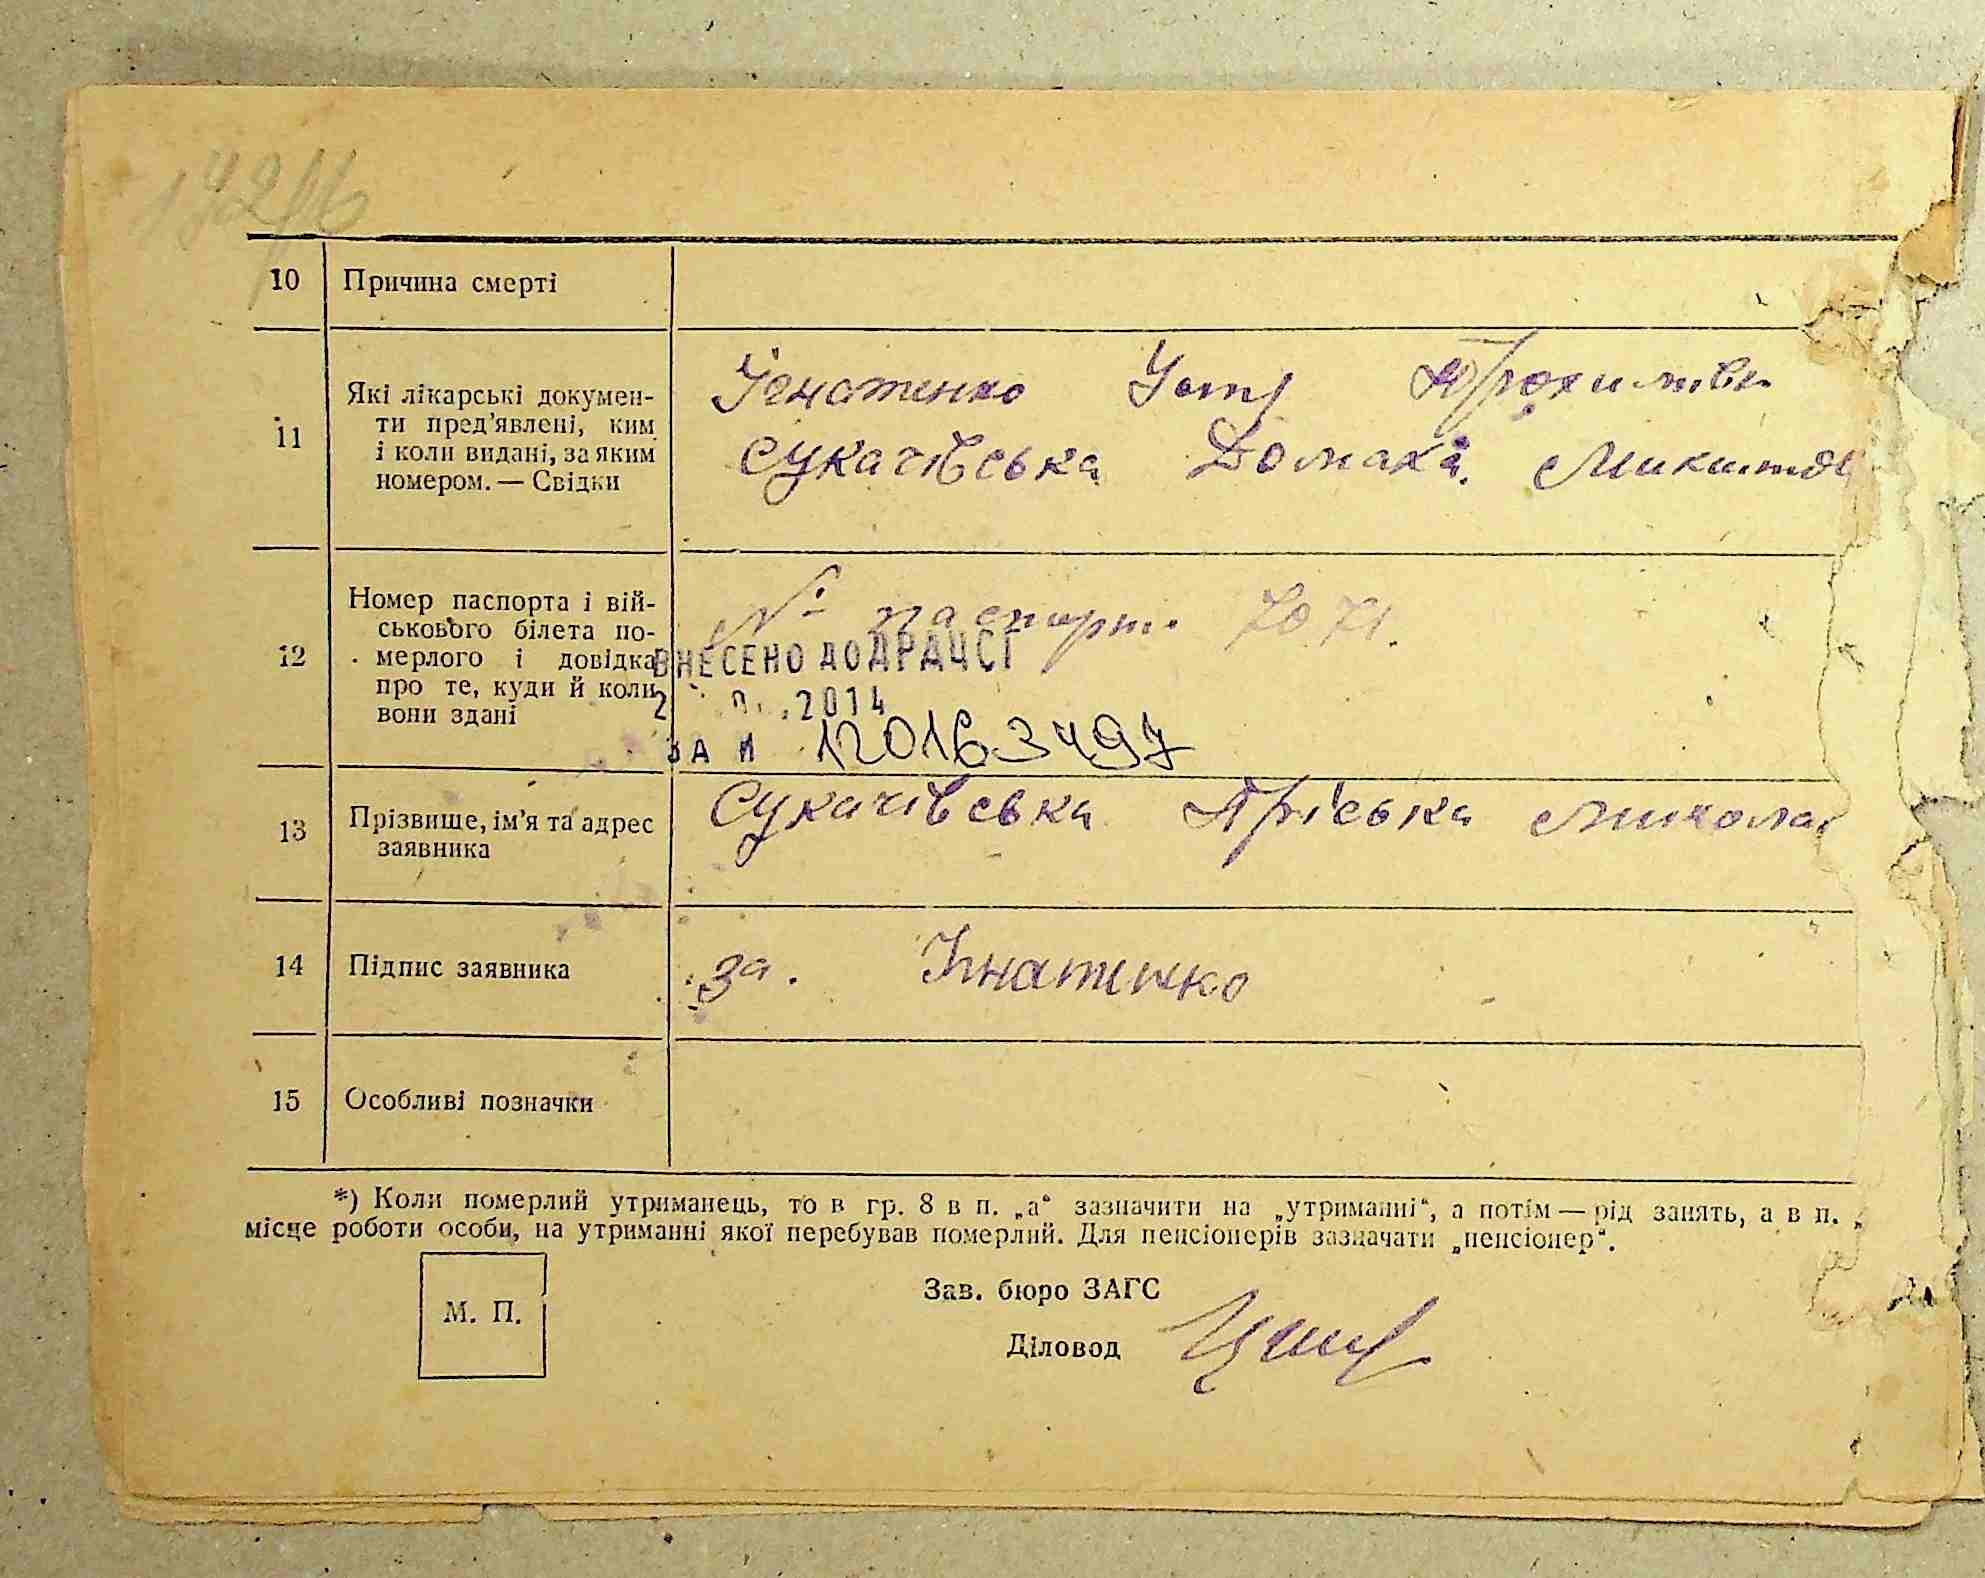 10 Причина смерті
11 Які лікарські докумен-
ти пред'явлені, ким
і коли видані, за яким
номером. — Свідки
Ігнатенко
Сукачівська Домаха
12 Номер паспорта і вій-
ськового білета по-
мерлого і довідка
про те, куди й коли
вони здані
№ паспорт. 7071.
ВНЕСЕНО ДО ДРАЦСГ
2014
ЗА №
13 Прізвище, ім'я та адрес
заявника
Сукачівська Пріська Микола
14 Підпис заявника
за. Ігнатенко
15 Особливі позначки
*) Коли померлий утриманець, то в гр. 8 в п. „а“ зазначити на „утриманні“, а потім — рід занять, а в п. „
місце роботи особи, на утриманні якої перебував померлий. Для пенсіонерів зазначати „пенсіонер“.
М. П.
Зав. бюро ЗАГС
Діловод